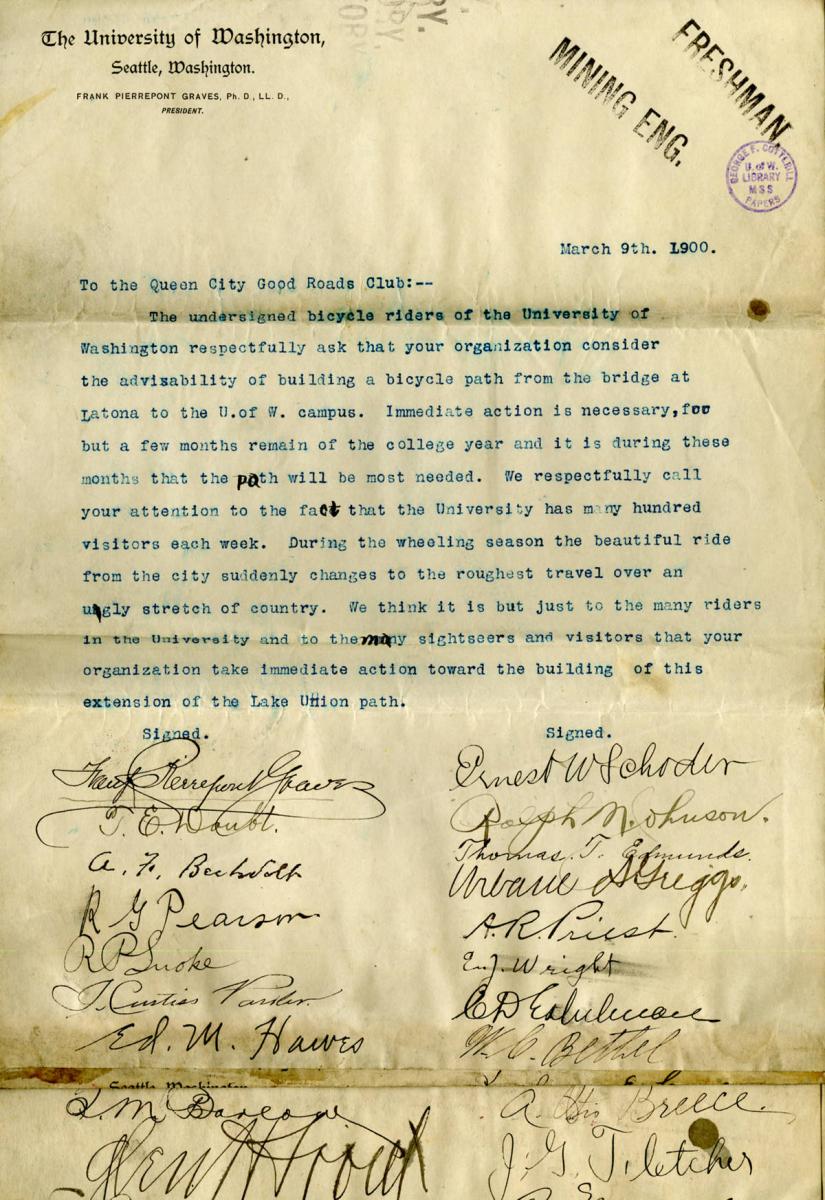 The University of Washington,
Seattle, Washington.
FRANK PIERREPONT GRAVES, Ph. D., LL. D.,
PRESIDENT.
MINING ENG.
FRESHMAN
GEORGE F. COTTERILL
U. of W.
LIBRARY
MSS
PAPERS
March 9th. 1900.
To the Queen City Good Roads Club:--
The undersigned bicycle riders of the University of
Washington respectfully ask that your organization consider
the advisability of building a bicycle path from the bridge at
Latona to the U.of W. campus. Immediate action is necessary, for
but a few months remain of the college year and it is during these
months that the path will be most needed. We respectfully call
your attention to the fact that the University has many hundred
visitors each week. During the wheeling season the beautiful ride
from the city suddenly changes to the roughest travel over an
ugly stretch of country. We think it is but just to the many riders
in the University and to the many sightseers and visitors that your
organization take immediate action toward the building of this
extension of the Lake Union path.
Signed.
Signed.
Frank Pierrepont Graves
T. E. Doubt.
A. F.
R G Pearson
R P
Curtiss
Ed. M. Hawes
Ernest W Schoder
Ralph N. Johnson.
Thomas. T. Edmunds.
Urbane Griggs.
A. R. Priest.
E. J. Wright
C D
W. C. Bethel
Seattle, Washington
A. Breece.
J. G. Fletcher